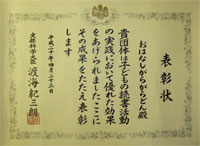 表彰状
おはなしがらがらどん殿
貴団体は子どもの読書活動
の実践において優れた効果
をあげられましたここに
その成果をたたえ表彰
します
平成二十年四月二十三日
文部科学大臣 渡海紀三朗